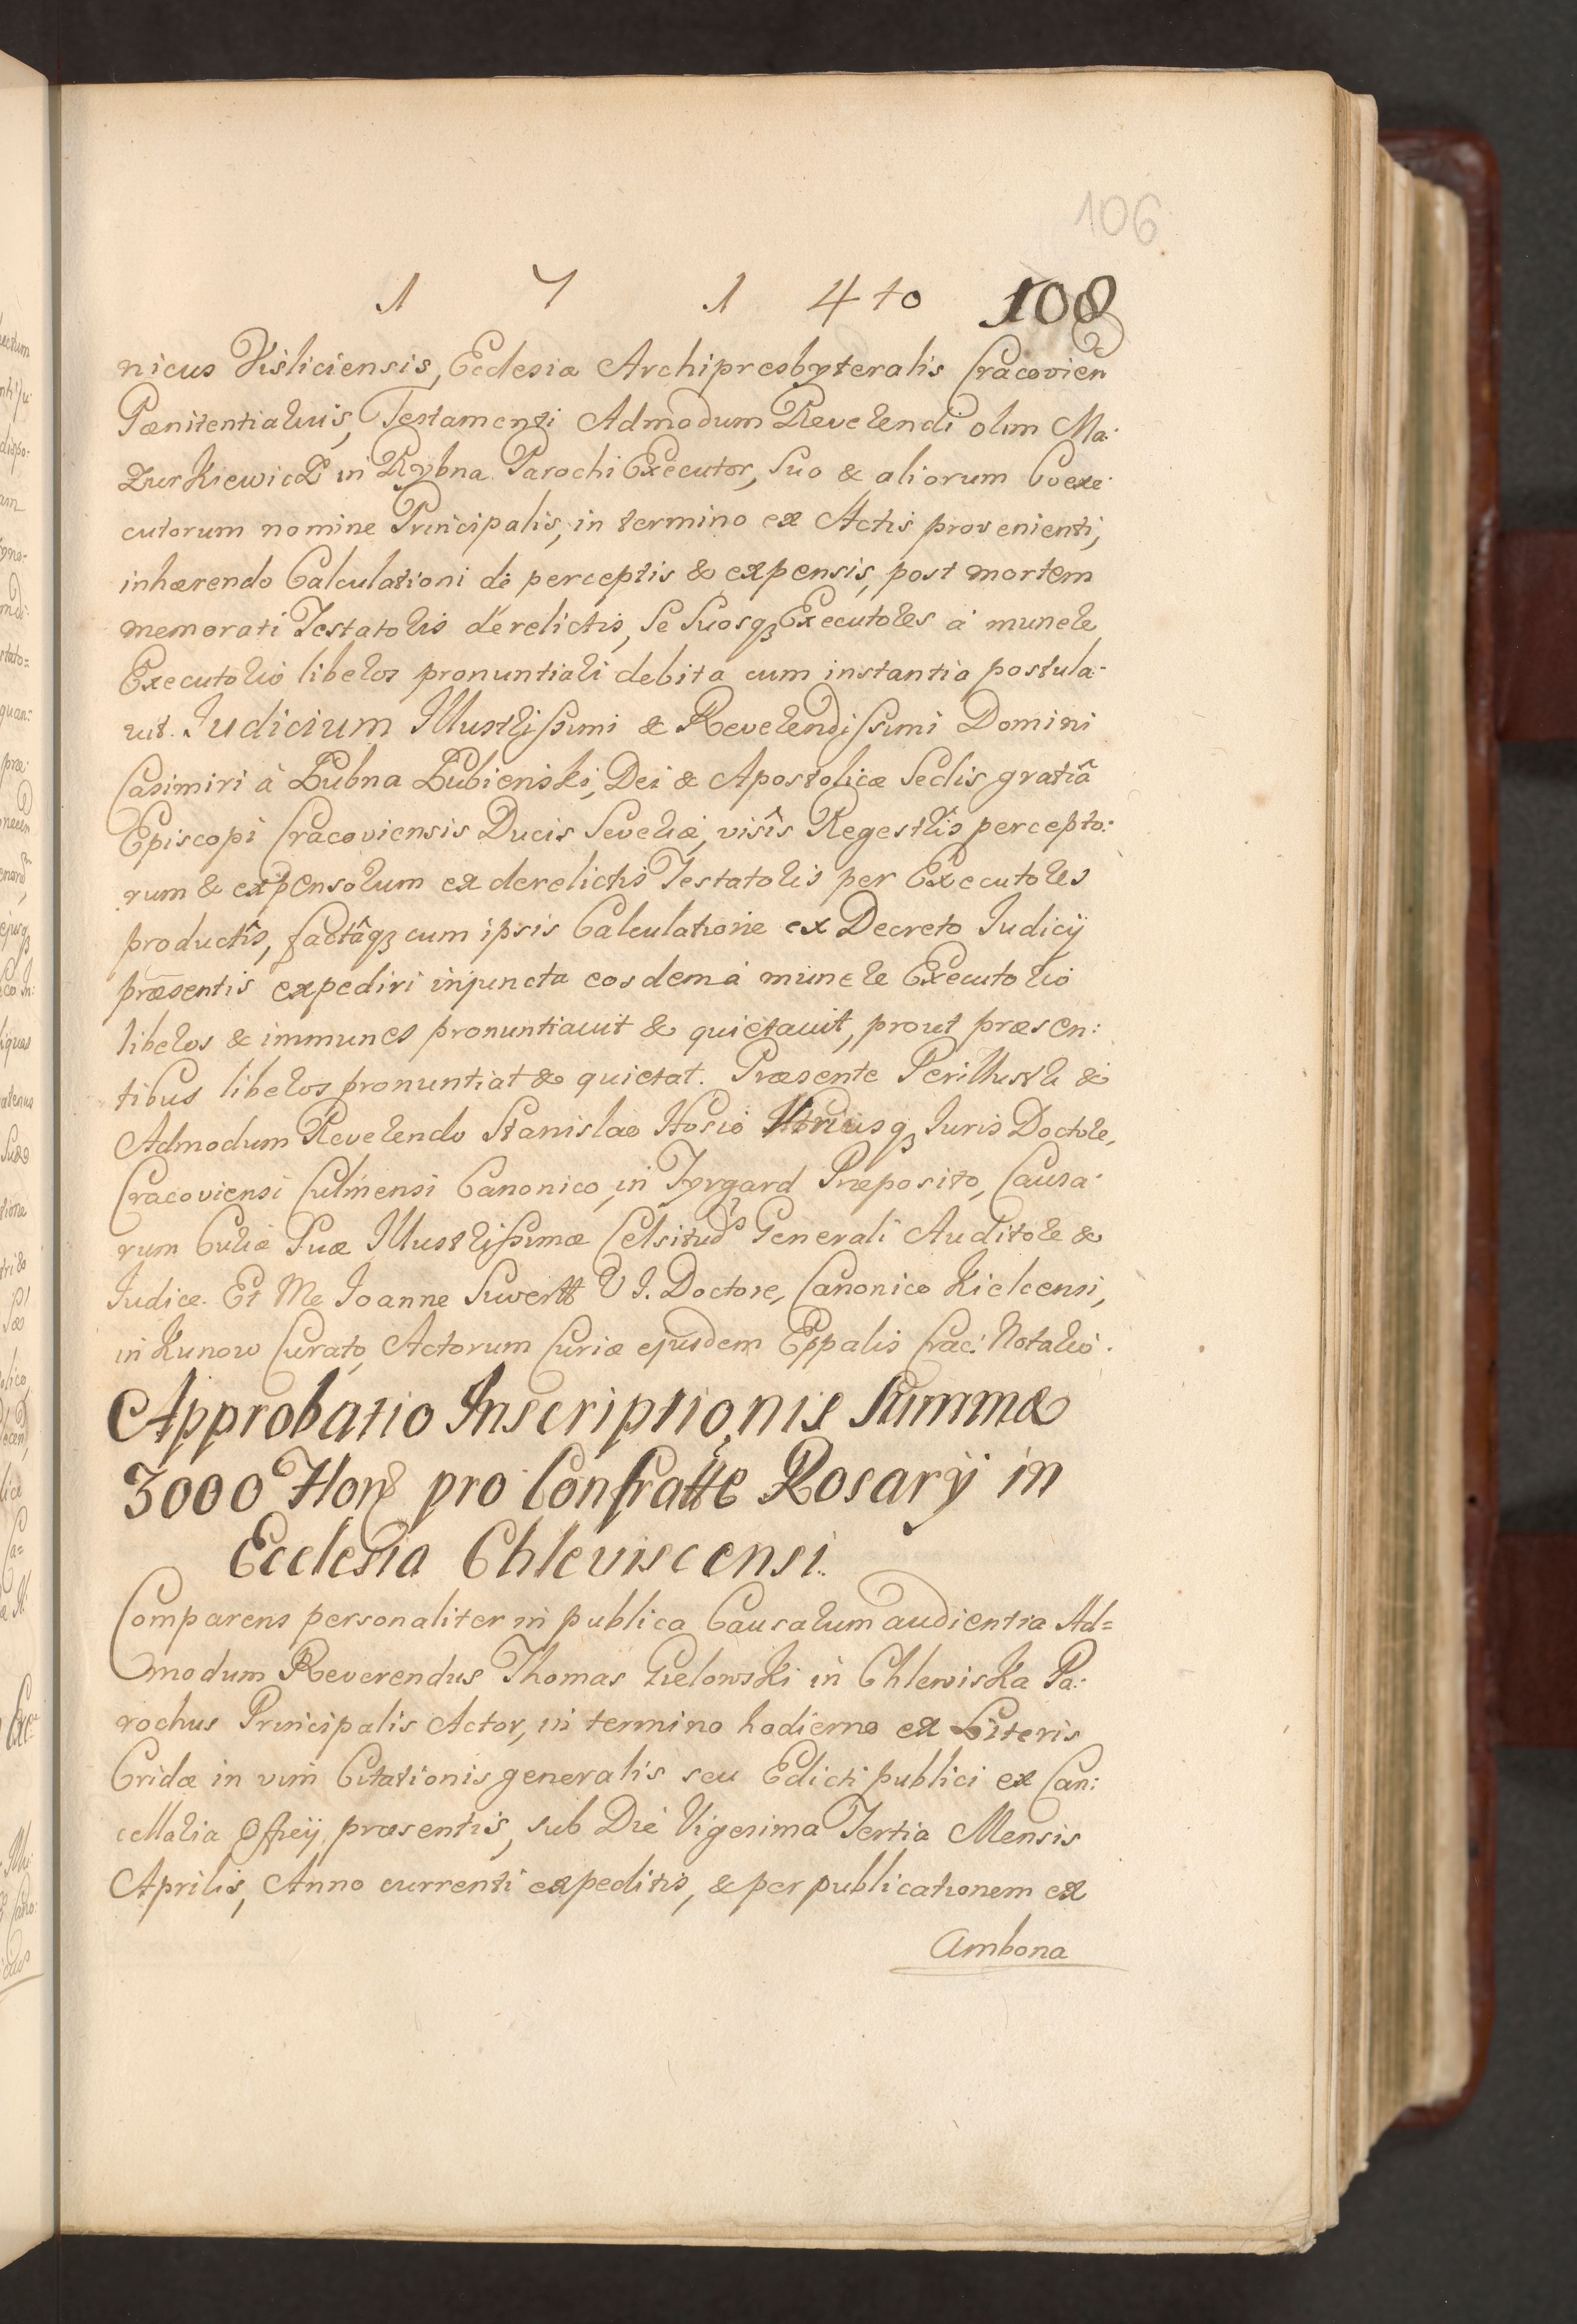 106
1 7 1 4to 108
nicus Visliciensis, Ecclesiæ Archipresbyteralis Cracovien
Pænitentiarius, Testamenti Admodum Reverendi olim Ma:
zurkiewicz in Rybna Parochi Executor, suo & aliorum Coexe:
cutorum nomine Principalis, in termino ex Actis provenienti,
inhærendo Calculationi de perceptis & expensis, post mortem
memorati Testatoris derelictis, se suosq3 Executores à munere
Executorio liberos pronuntiari debita cum instantia postula:
vit. Iudicium Illustrissimi & Reverendissimi Domini
Casimiri à Łubna Łubienski, Dei & Apostolicæ Sedis gratiâ
Episcopi Cracoviensis Ducis Severiæ, visîs Regestris percepto:
rum & expensorum ex derelictis Testatoris per Executores
productîs, factâq3 cum ipsis Calculatione ex Decreto Iudicij
præsentis expediri injuncta eosdem à munere Executorio
liberos & immunes pronuntiavit & quietavit, prout præsen:
tibus liberos pronuntiat & quietat. Præsente Perillustri &
Admodum Reverendo Stanislao Hosio Utriusq3 Iuris Doctore,
Cracoviensi Culmensi Canonico, in Tyrgard Præposito, Causa:
rum Curiæ Suæ Illustrissimæ Celsituds Generali Auditore &
Iudice. Et Me Ioanne Suwertt U I. Doctore, Canonico Kielcensi,
in Kunow Curato, Actorum Curiæ ejusdem Eppalis Crac: Notario.
Approbatio Inscriptionis Summæ
3000 Flor pro Confratte Rosarij in
Ecclesia Chleviscensi.
Comparens personaliter in publica Causarum audientia Ad=
modum Reverendus Thomas Gielowski in Chlewiska Pa:
rochus Principalis Actor, in termino hodierno ex Literis
Cridæ in vim Citationis generalis seu Edicti publici ex Can:
cellaria Offcij præsentis, sub Die Vigesima Tertia Mensis
Aprilis, Anno currenti expeditis, & per publicationem ex
Ambona